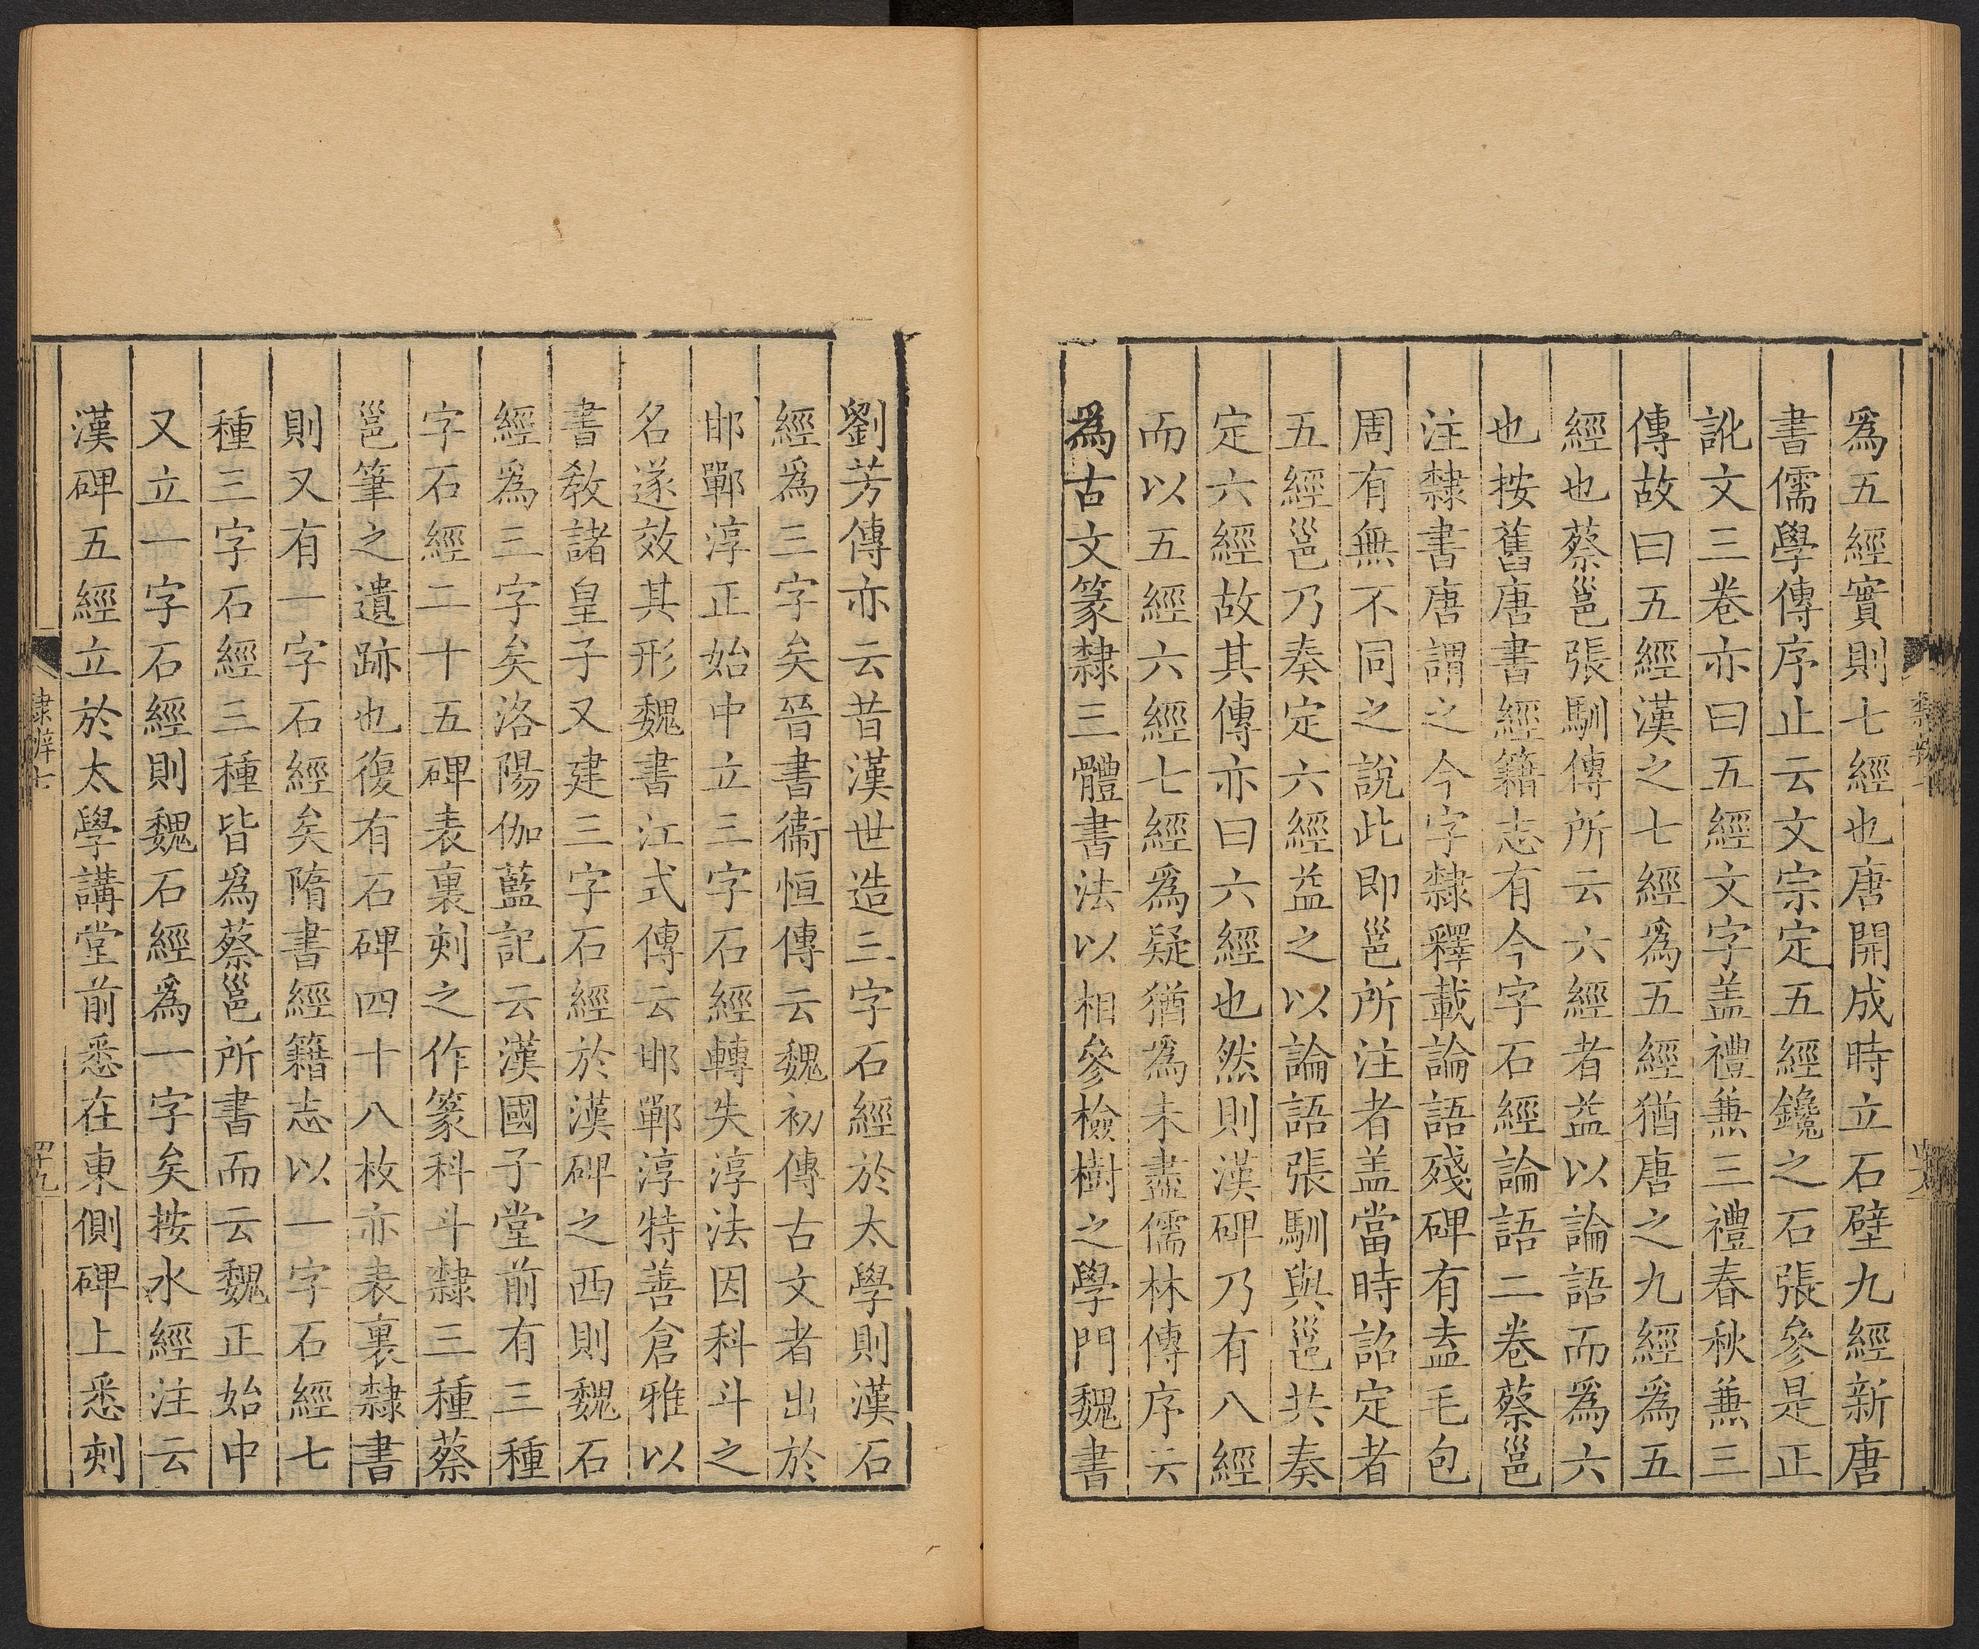 爲五經實則七經也唐開成時立石壁九經新唐
書儒學傳序止云文宗定五經鑱之石張參是正
訛文三卷亦曰五經文字盖禮兼三禮春秋兼三
傳故曰五經漢之七經爲五經猶唐之九經爲五
經也蔡邕張馴傳所云六經者益以論語而爲六
也按舊唐書經籍志有今字石經論語二卷蔡邕
注隸書唐謂之今字隸釋載論語殘碑有盍毛包
周有無不同之說此即邕所注者盖當時詔定者
五經邕乃奏定六經益之以論語張馴與邕共奏
定六經故其傳亦曰六經也然則漢碑乃有八經
而以五經六經七經爲疑猶爲未盡儒林傳序云
爲古文篆隸三體書法以相參檢樹之學門魏書
劉芳傳亦云昔漢世造三字石經於太學則漢石
經爲三字矣晉書衞恒傳云魏初傳古文者出於
邯鄲淳正始中立三字石經轉失淳法因科斗之
名遂效其形魏書江式傳云邯鄲淳特善倉雅以
書敎諸皇子又建三字石經於漢碑之西則魏石
經爲三字矣洛陽伽藍記云漢國子堂前有三種
字石經二十五碑表裏刻之作篆科斗隸三種蔡
邕筆之遺跡也復有石碑四十八枚亦表裏隸書
則又有一字石經矣隋書經籍志以一字石經七
種三字石經三種皆爲蔡邕所書而云魏正始中
又立一字石經則魏石經爲一字矣按水經注云
漢碑五經立於太學講堂前悉在東側碑上悉刻
隸辨七
四十九